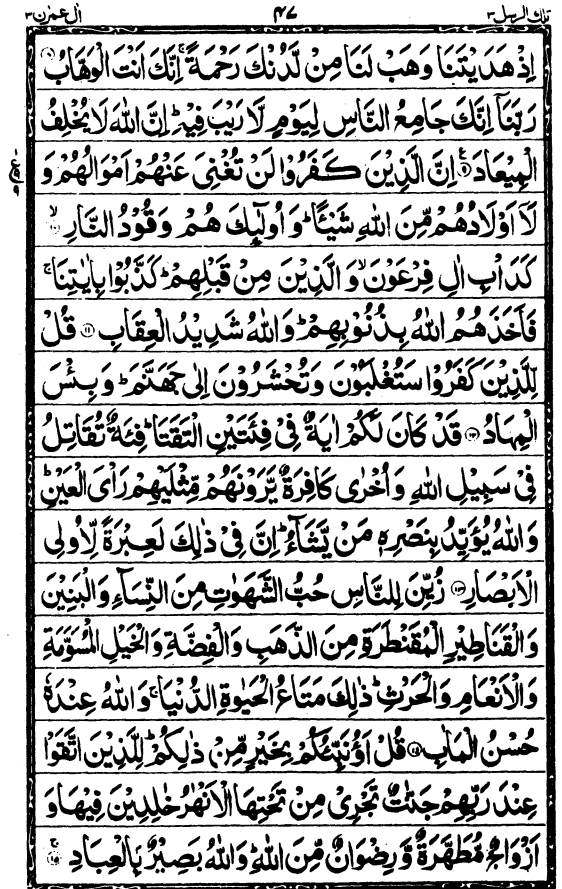 تلك الرسل ٣ ٤٧ اٰل عمرٰن ٣
اِذْ هَدَيْتَنَا وَهَبْ لَنَا مِنْ لَّدُنْكَ رَحْمَةً ۚ اِنَّكَ اَنْتَ الْوَهَّابُ ﴿۸﴾
رَبَّنَاۤ اِنَّكَ جَامِعُ النَّاسِ لِيَوْمٍ لَّا رَيْبَ فِيْهِ ؕ اِنَّ اللّٰهَ لَا يُخْلِفُ
الْمِيْعَادَ ﴿۹﴾ اِنَّ الَّذِيْنَ كَفَرُوْا لَنْ تُغْنِيَ عَنْهُمْ اَمْوَالُهُمْ وَ
لَاۤ اَوْلَادُهُمْ مِّنَ اللّٰهِ شَيْـًٔا ؕ وَ اُولٰٓئِكَ هُمْ وَقُوْدُ النَّارِ ﴿۱۰﴾ ۙ
كَدَاْبِ اٰلِ فِرْعَوْنَ ۙ وَ الَّذِيْنَ مِنْ قَبْلِهِمْ ؕ كَذَّبُوْا بِاٰيٰتِنَا ۚ
فَاَخَذَهُمُ اللّٰهُ بِذُنُوْبِهِمْ ؕ وَ اللّٰهُ شَدِيْدُ الْعِقَابِ ﴿۱۱﴾ قُلْ
لِّلَّذِيْنَ كَفَرُوْا سَتُغْلَبُوْنَ وَ تُحْشَرُوْنَ اِلٰى جَهَنَّمَ ؕ وَ بِئْسَ
الْمِهَادُ ﴿۱۲﴾ قَدْ كَانَ لَكُمْ اٰيَةٌ فِيْ فِئَتَيْنِ الْتَقَتَا ؕ فِئَةٌ تُقَاتِلُ
فِيْ سَبِيْلِ اللّٰهِ وَ اُخْرٰى كَافِرَةٌ يَّرَوْنَهُمْ مِّثْلَيْهِمْ رَاْيَ الْعَيْنِ ؕ
وَ اللّٰهُ يُؤَيِّدُ بِنَصْرِهٖ مَنْ يَّشَآءُ ؕ اِنَّ فِيْ ذٰلِكَ لَعِبْرَةً لِّاُولِي
الْاَبْصَارِ ﴿۱۳﴾ زُيِّنَ لِلنَّاسِ حُبُّ الشَّهَوٰتِ مِنَ النِّسَآءِ وَ الْبَنِيْنَ
وَ الْقَنَاطِيْرِ الْمُقَنْطَرَةِ مِنَ الذَّهَبِ وَ الْفِضَّةِ وَ الْخَيْلِ الْمُسَوَّمَةِ
وَ الْاَنْعَامِ وَ الْحَرْثِ ؕ ذٰلِكَ مَتَاعُ الْحَيٰوةِ الدُّنْيَا ۚ وَ اللّٰهُ عِنْدَهٗ
حُسْنُ الْمَاٰبِ ﴿۱۴﴾ قُلْ اَؤُنَبِّئُكُمْ بِخَيْرٍ مِّنْ ذٰلِكُمْ ؕ لِلَّذِيْنَ اتَّقَوْا
عِنْدَ رَبِّهِمْ جَنّٰتٌ تَجْرِيْ مِنْ تَحْتِهَا الْاَنْهٰرُ خٰلِدِيْنَ فِيْهَا وَ
اَزْوَاجٌ مُّطَهَّرَةٌ وَّ رِضْوَانٌ مِّنَ اللّٰهِ ؕ وَ اللّٰهُ بَصِيْرٌۢ بِالْعِبَادِ ﴿۱۵﴾ ۚ